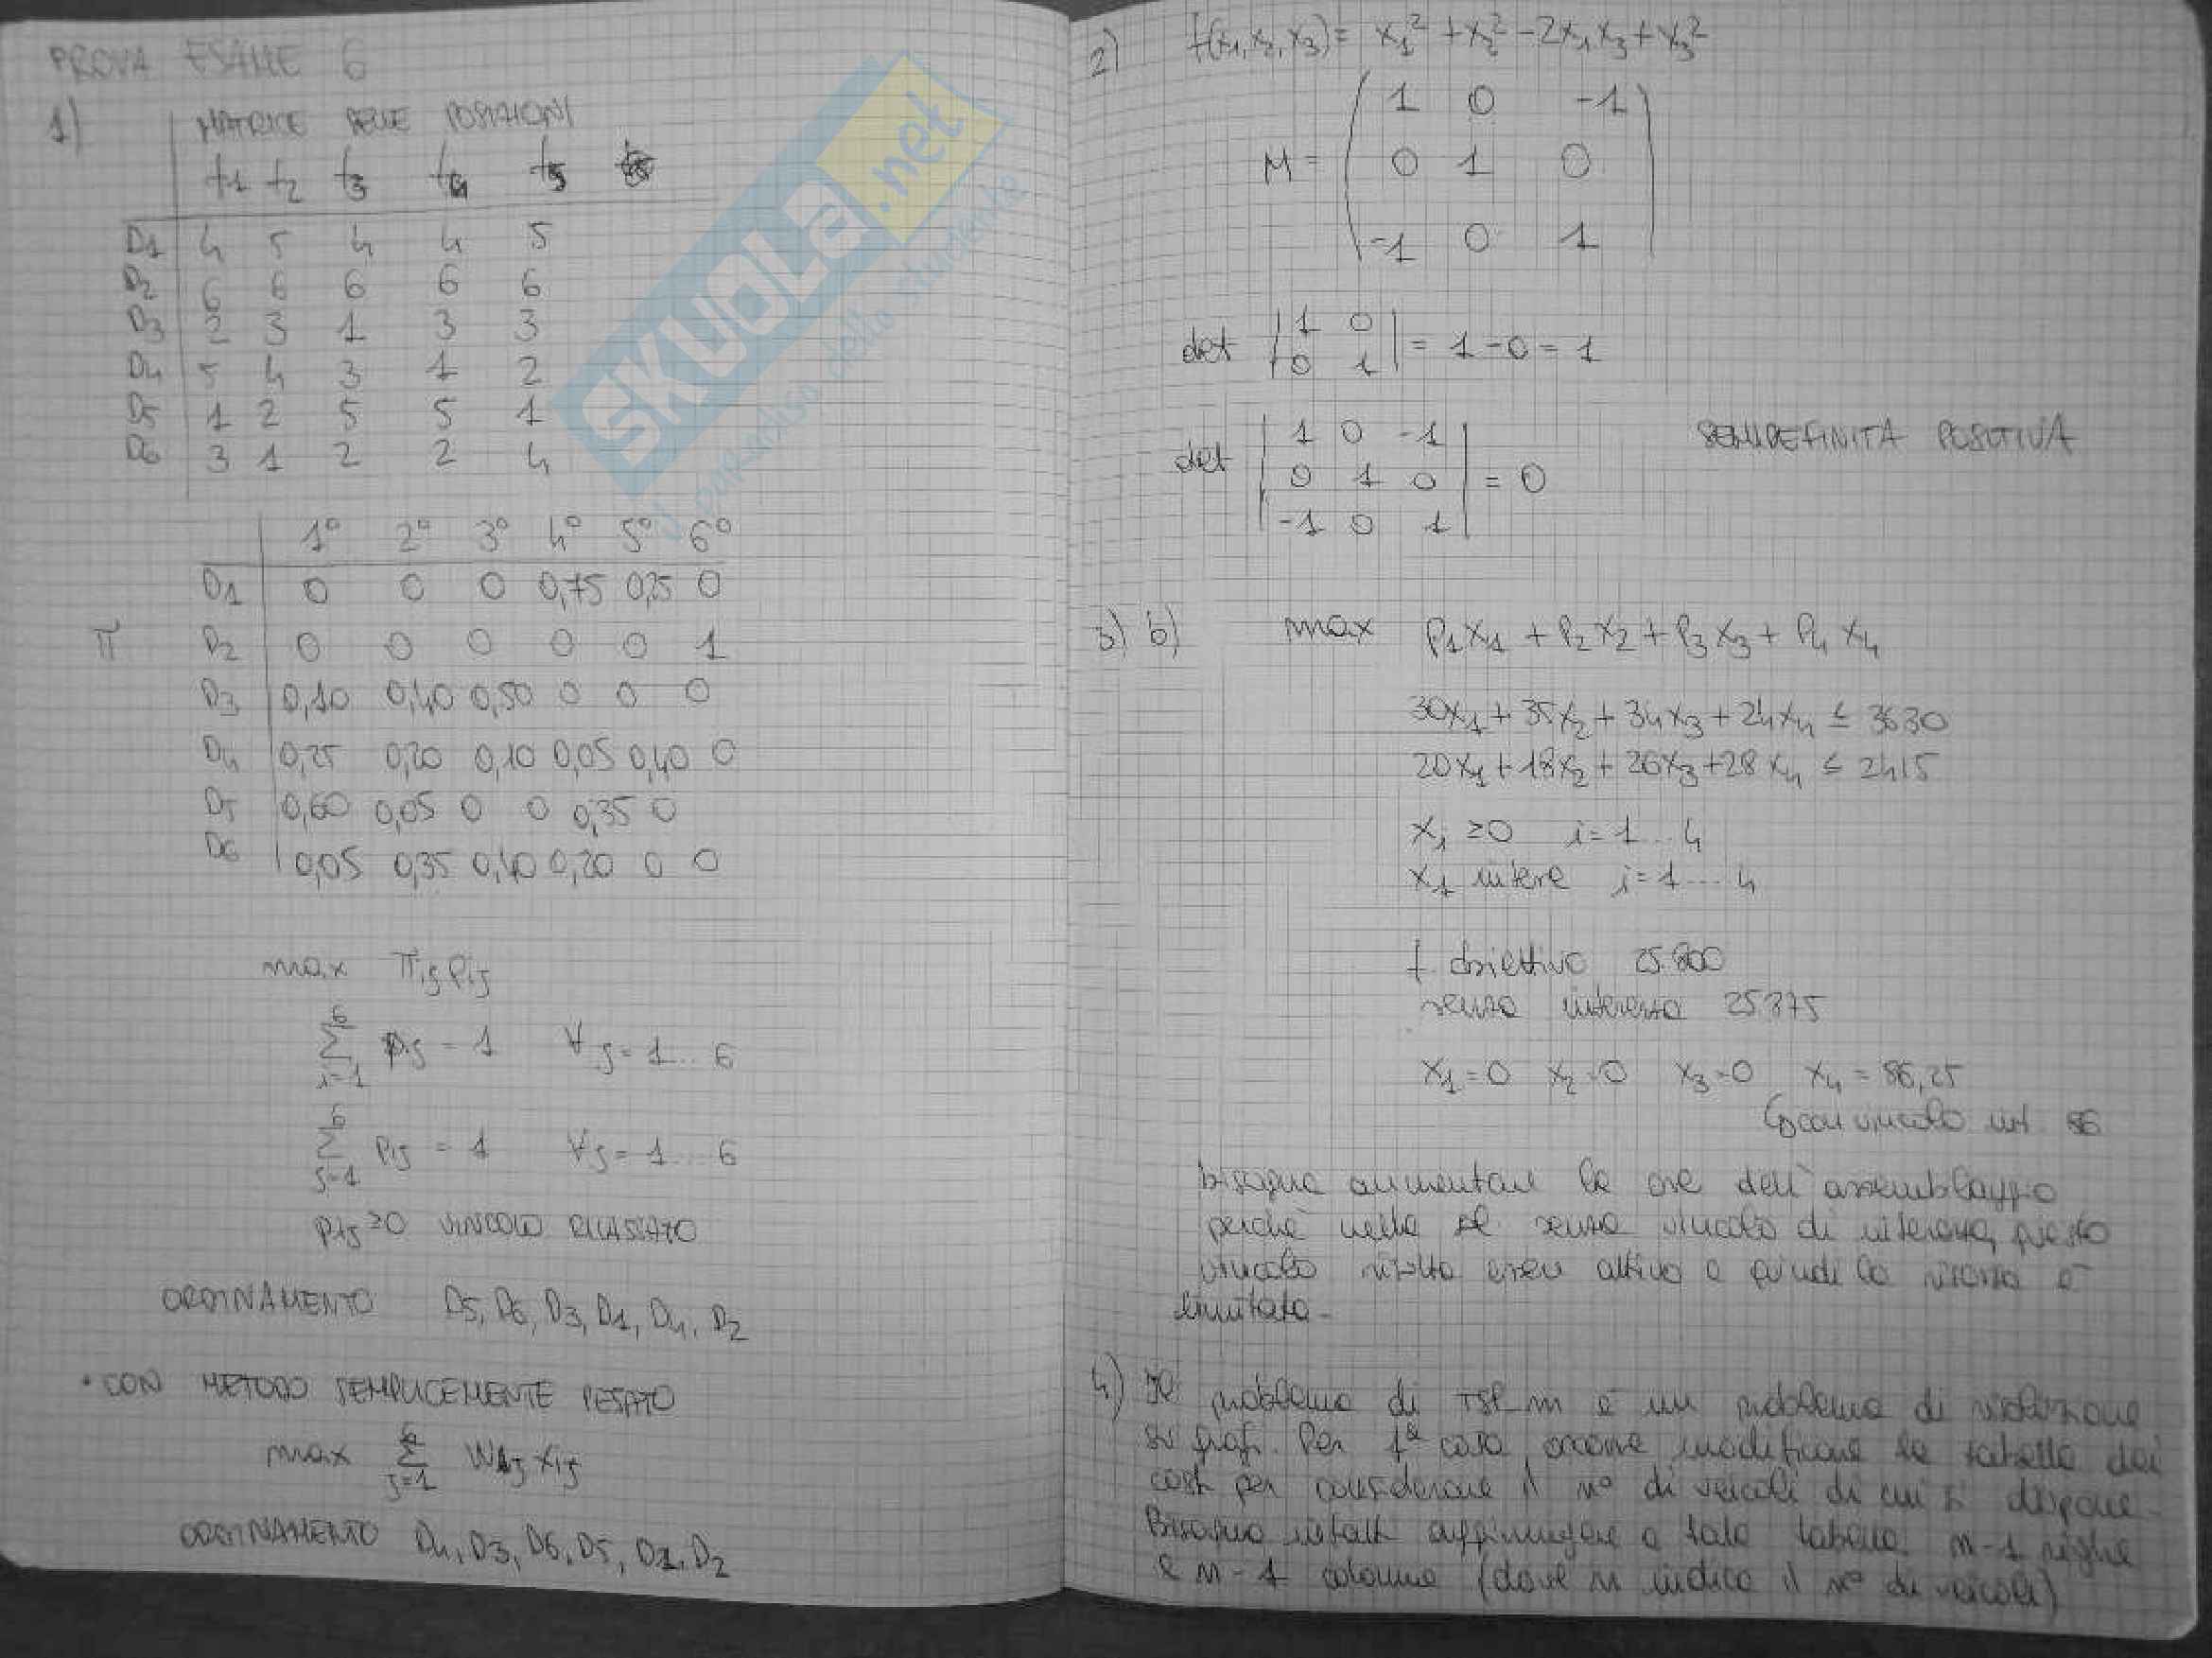 PROVA ESAME 6
1) MATRICE DELLE POSIZIONI
f1 f2 f3 f4 f5
D1 4 5 4 4 5
D2 6 6 6 6 6
D3 2 3 1 3 3
D4 5 4 3 1 2
D5 1 2 5 5 1
D6 3 1 2 2 4
1° 2° 3° 4° 5° 6°
D1 0 0 0 0,75 0,25 0
π D2 0 0 0 0 0 1
D3 0,10 0,40 0,50 0 0 0
D4 0,25 0,20 0,10 0,05 0,40 0
D5 0,60 0,05 0 0 0,35 0
D6 0,05 0,35 0,40 0,20 0 0
max πij pij
6
Σ pij = 1 ∀j = 1... 6
i=1
6
Σ pij = 1 ∀j = 1... 6
j=1
pij ≥0 VINCOLO RILASSATO
ORDINAMENTO D5, D6, D3, D1, D4, D2
• CON METODO SEMPLICEMENTE PESATO
max Σ wij xij
j=1
ORDINAMENTO D4, D3, D6, D5, D1, D2
2) f(x1, x2, x3) = x1² + x2² - 2x1 x3 + x3²
1 0 -1
M = 0 1 0
-1 0 1
det |1 0
0 1| = 1 - 0 = 1
1 0 -1
det 0 1 0 = 0 SEMIDEFINITA POSITIVA
-1 0 1
3) b) max P1x1 + P2x2 + P3x3 + P4x4
30x1 + 35x2 + 34x3 + 24x4 ≤ 3630
20x1 + 18x2 + 26x3 + 28x4 ≤ 2415
xi ≥0 i=1...4
xi intere i=1....4
f. obiettivo 25.800
senza interezza 25875
x1=0 x2=0 x3=0 x4=86,25
con vincolo int. 86
bisogna aumentare le ore dell'assemblaggio
perchè nella sol. senza vincolo di interezza, questo
vincolo risulta esser attivo e quindi la risorsa è
limitata.
4) Il problema di TSP-m è un problema di
su grafi. Per 1ª cosa occorre modificare la tabella dei
costi per considerare il n° di veicoli di cui si dispone.
Bisogna infatti aggiungere a tale tabella m-1 righe
e m-1 colonne (dove m indica il n° di veicoli)
SKUOLA.net
il paradiso dello studente